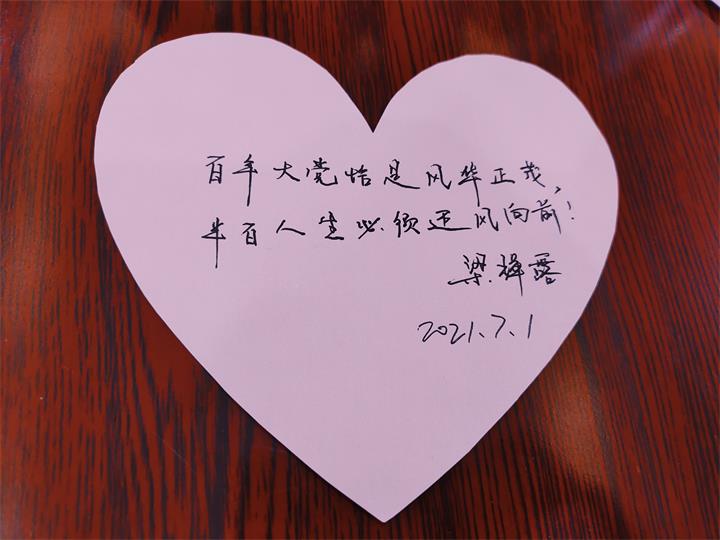 百年大党恰是风华正茂，
半百人生必须迎风向前！
梁辉露
2021.7.1